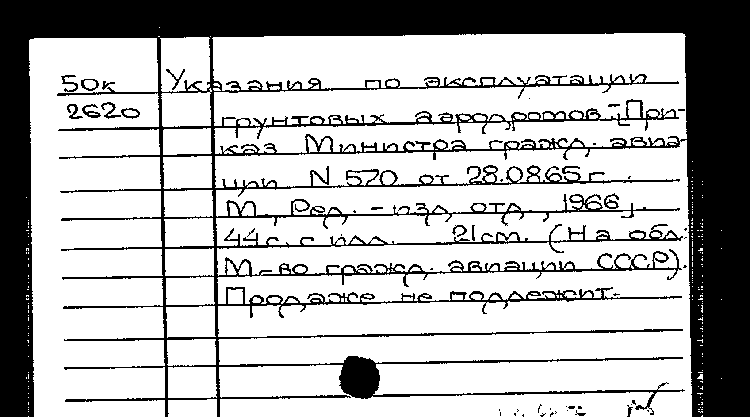 50к Указания по эксплуатации
2620 грунтовых аэродромов. [При-
каз Министра гражд. авиа-
ции N 570 от 28.08.65 г.
М., Ред.-изд. отд., 1966].
44 с. с илл. 21 см. (На обл.:
М-во гражд. авиации СССР).
Продаже не подлежит.